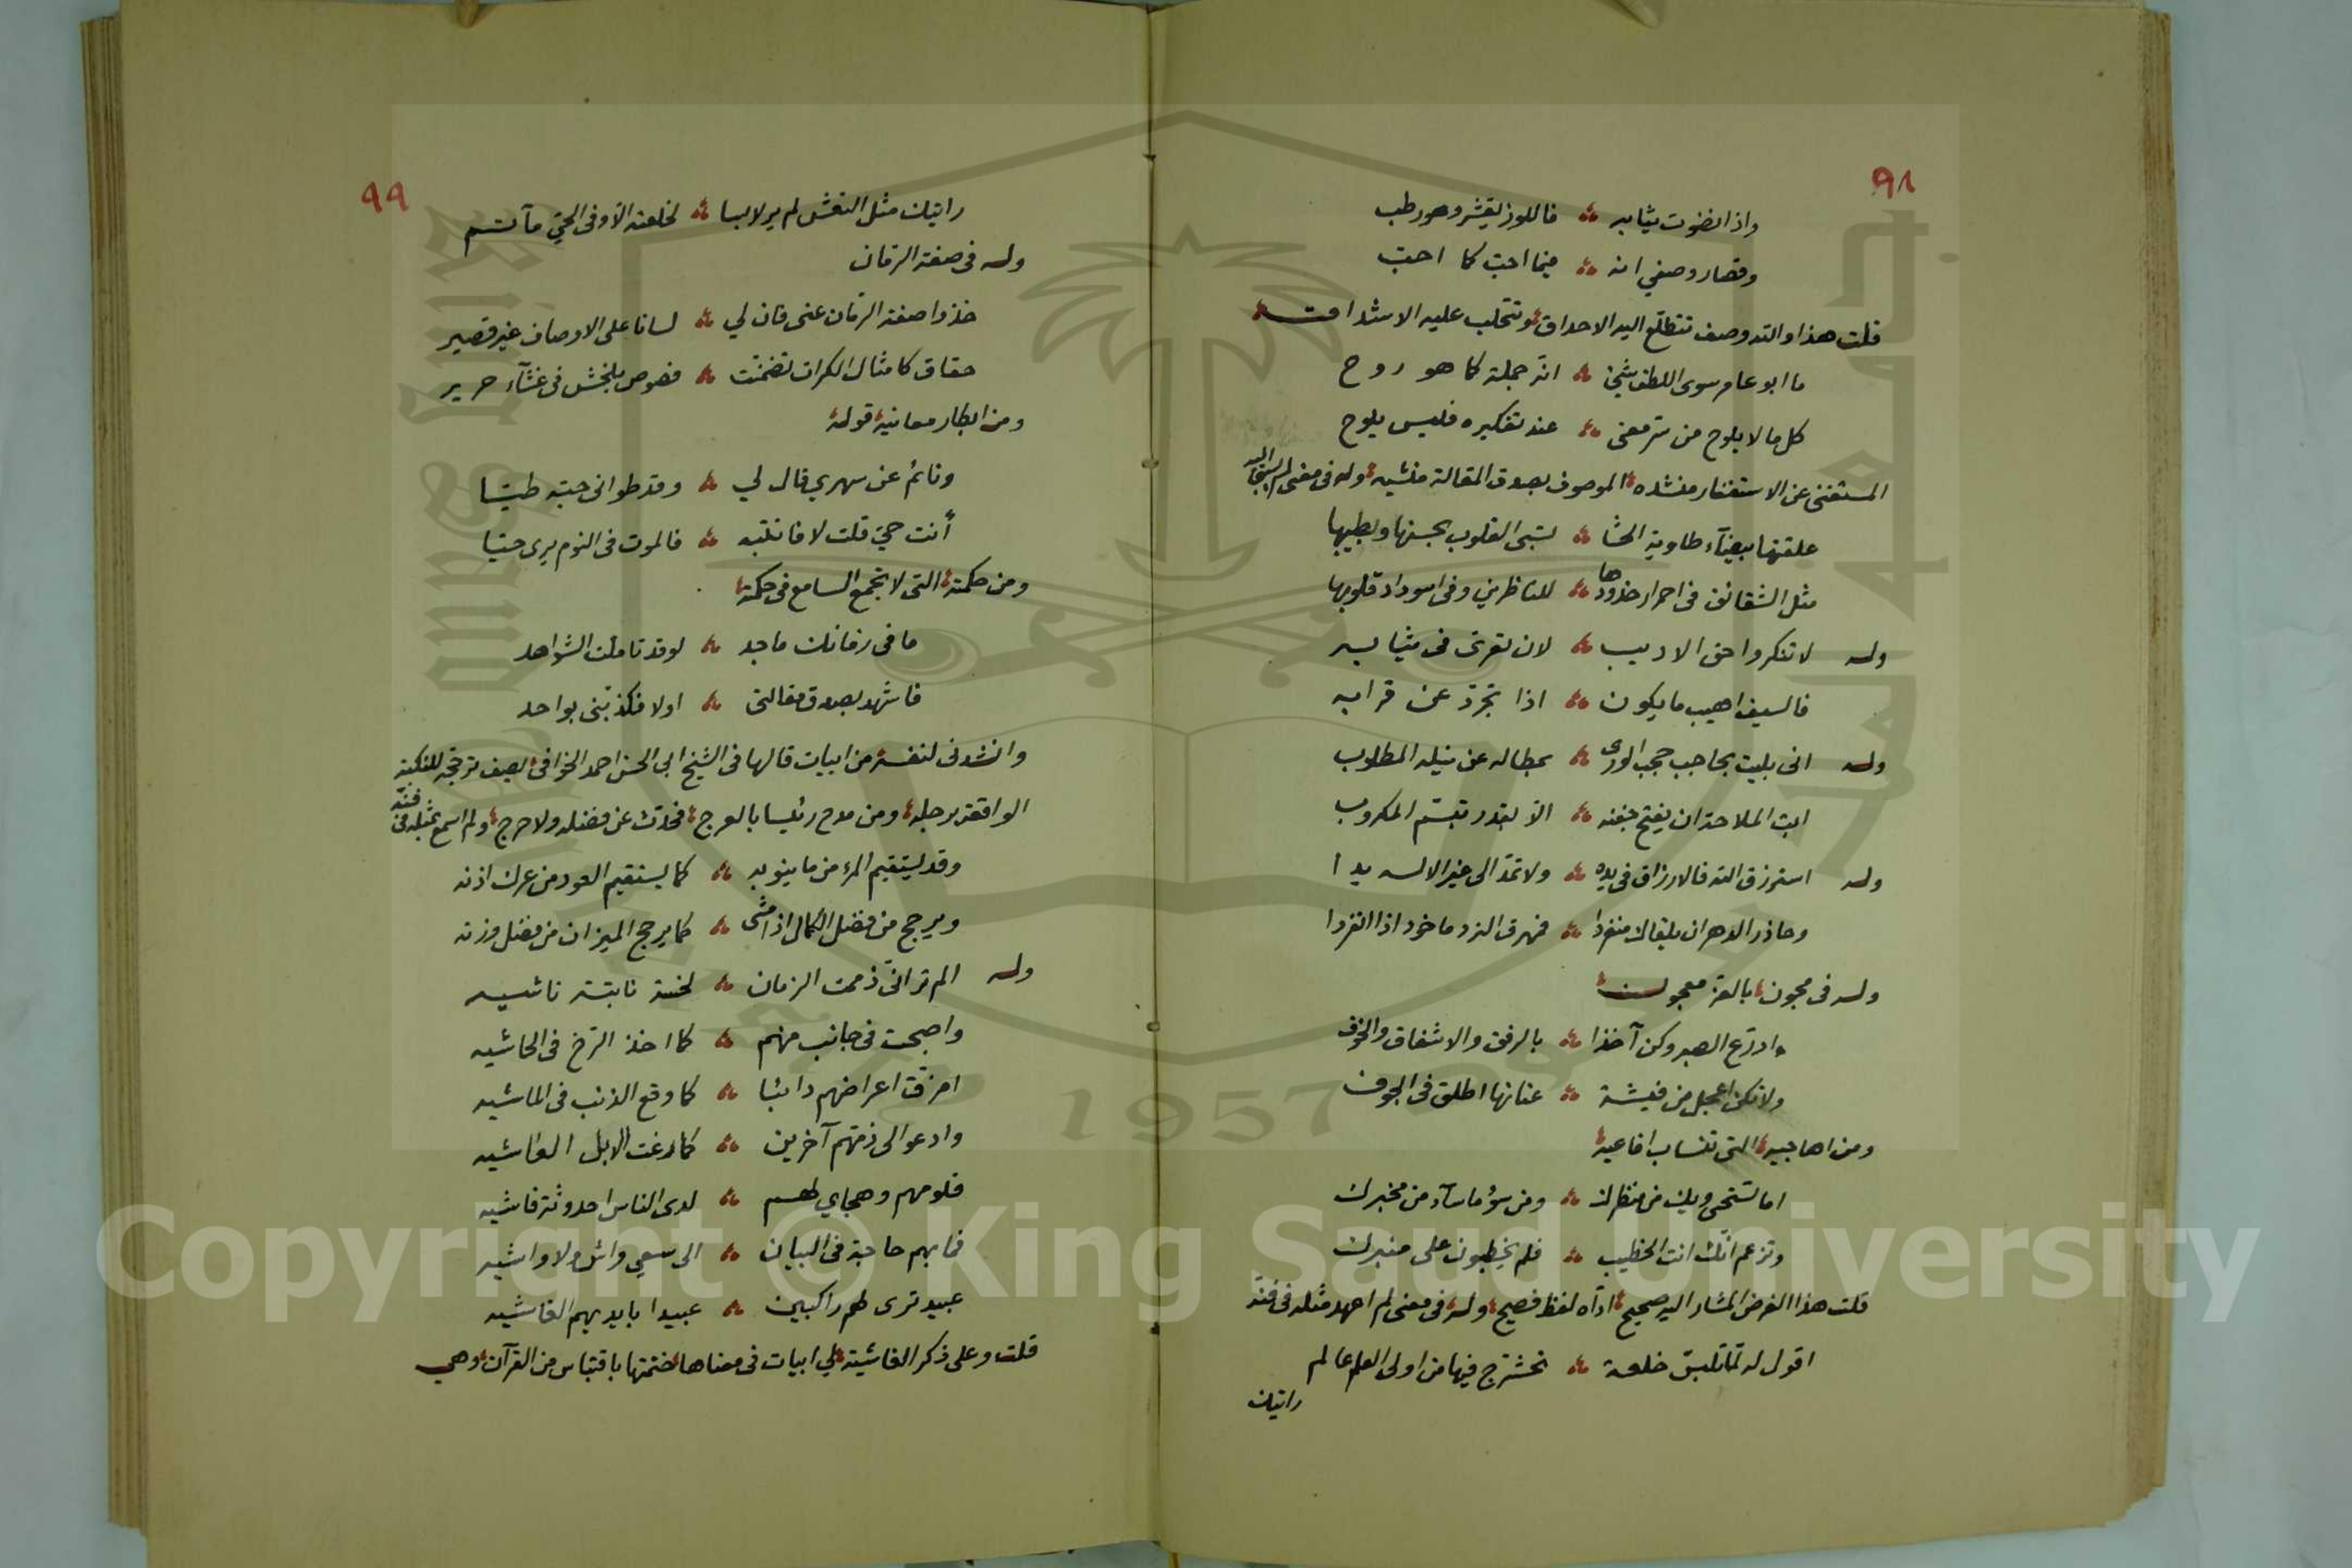 ٩٨
واذا نضوت ثيابه فاللوز يقشر وهو رطب
وقصار وصفي انه فيما احب كما احب
قلت هذا والله وصف تتطلع اليه الاحداق وتتحلب عليه الاشداق
ما ابو عامر سوى اللطف شئ انه جملة كما هو روح
كل ما لا يلوح من سر معنى عند تفكيره فليس يلوح
المستغنى عن الاستغفار منشده الموصوف بصدق المقالة منشيه وله فى معنى لم يسبق اليه
علقتها بيضآء طاوية الحشا تسبى القلوب بحسنها وبطيبها
مثل الشقائق فى احمرار خدودها للناظرين وفى اسوداد قلوبها
وله لا تنكروا حق الاديب لان تعرى فى ثيابه
فالسيف اهيب ما يكون اذا تجرد عن قرابه
وله انى بليت بحاجب حجب الورى بمطاله عن نيله المطلوب
ابت الملاحة ان يفتح جفنه الا بقدر تبسم المكروب
وله استرزق الله فالارزاق فى يده ولا تمد الى غير الاله يدا
وحاذر الدهر ان يلقاك منفردا فمهرق النرد ماخوذ اذا انفردا
وله فى مجون بالعة معجون
وادرع الصبر وكن آخذا بالرفق والاشفاق والخوف
ولا تكن اعجل من فيشة عنانها اطلق فى الجوف
ومن اهاجيه التى تنساب افاعيه
اما تستحى ويك من منظرك ومن سوء ما سآء من مخبرك
وتزعم انك انت الخطيب فلم يخطبون على منبرك
قلت هذا الغرض المشار اليه صحيح ادآه لفظ فصيح وله فى معنى لم اعهد مثله فى فنه
اقول له لما تلبس خلعة تحشرج فيها من اولى العلم عالم
راتيك
٩٩
راتيك مثل النعش لم ير لابسا لخلعته الا وفى الحي مآتم
وله فى صفة الرمان
خذوا صفة الرمان عنى فان لي لسانا على الاوصاف غير قصير
حقاق كامثال الكرات تضمنت فصوص بلخش فى غشآء حرير
ومن ابكار معانيه قوله
ونائم عن سهري قال لي وقد طوانى حبه طيا
أنت حي قلت لا فانتبه فالموت فى النوم يرى حيا
ومن حكمه التى لا تجمع السامع فى حكمة
ما فى زمانك ماجد لو قد تاملت الشواهد
فاشهد بصدق مقالتى اولا فكذبنى بواحد
وانشدنى لنفسه من ابيات قالها فى الشيخ ابى الحسن احمد الخوافى يصف ترجحه للنكبة
الواقعة برجله ومن مدح رئيسا بالعرج فحدث عن فضله ولا حرج ولم اسمع بمثله فى فنه
وقد يستقيم المرء من ما ينوبه كما يستقيم العود من عرك اذنه
ويرجح من فضل الكمال اذا مشى كما يرجح الميزان من فضل وزنه
وله الم تر انى ذممت الزمان لخسة نابتة ناشيه
واصبحت فى جانب منهم كما اخذ الرخ فى الحاشيه
امزق اعراضهم دائبا كما وقع الذئب فى الماشيه
وادعو الى ذمهم آخرين كما رغت الابل العاشيه
فلومهم وهجاي لهم لدى الناس احدوثة فاشيه
فما بهم حاجة فى البيان الى سعي واش ولا واشيه
عبيد ترى لهم راكبين عبيدا بايديهم الغاشيه
قلت وعلى ذكر الغاشية لي ابيات فى معناها ختمتها باقتباس من القرآن وهي
Copyright © King Saud University
1957